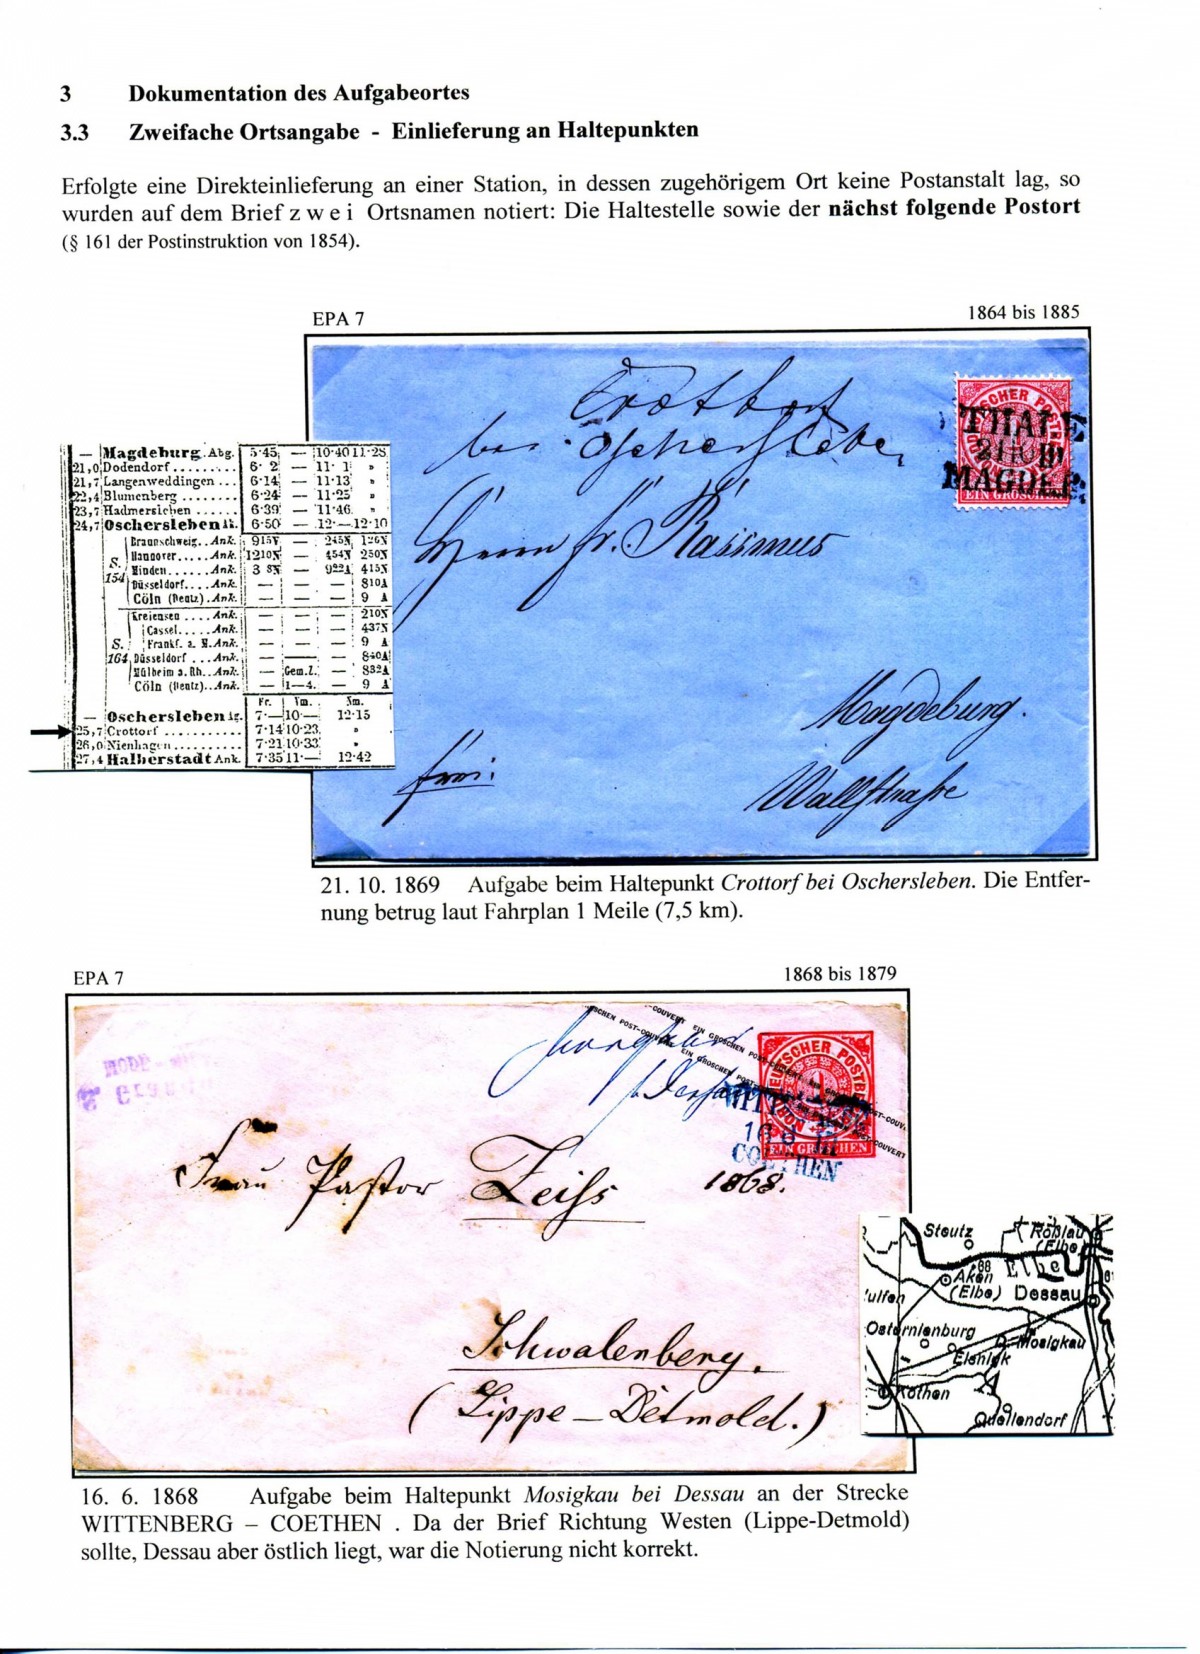 3 Dokumentation des Aufgabeortes
3.3 Zweifache Ortsangabe - Einlieferung an Haltepunkten
Erfolgte eine Direkteinlieferung an einer Station, in dessen zugehörigem Ort keine Postanstalt lag, so
wurden auf dem Brief z w e i Ortsnamen notiert: Die Haltestelle sowie der nächst folgende Postort
(§ 161 der Postinstruktion von 1854).
EPA 7 1864 bis 1885
Crottorf
bei Oschersleben
THALE
21 10 III
MAGDEB.
EIN GROSCHEN
Herrn Fr. Rassmus
Magdeburg.
Wallstraße
frei.
— Magdeburg. Abg. 5·45 — 10·40 11·28
21,0 Dodendorf ........ 6· 2 — 11· 1 "
21,7 Langenweddingen ... 6·14 — 11·13 "
22,4 Blumenberg ........ 6·24 — 11·25 "
23,7 Hadmersleben ...... 6·39 — 11·46 "
24,7 Oschersleben Ak. 6·50 — 12·— 12·10
S. 154
Braunschweig.. Ank. 915V — 245N 126N
Hannover..... Ank. 1210N — 454N 250N
Minden...... Ank. 3 8N — 922A 415N
Düsseldorf.... Ank. — — — 810A
Cöln (Deutz). Ank. — — — 9 A
S. 164
Kreiensen .... Ank. — — — 210N
Cassel..... Ank. — — — 437N
Frankf. a. M. Ank. — — — 9 A
Düsseldorf ... Ank. — — — 840A
Mülheim a. Rh.. Ank. — Gem.Z. — 832A
Cöln (Deutz).. Ank. — 1—4. — 9 A
Fr. Vm. Nm.
— Oschersleben Ag. 7·— 10·— 12·15
25,7 Crottorf .......... 7·14 10·23 "
26,0 Nienhagen .......... 7·21 10·33 "
27,4 Halberstadt Ank. 7·35 11·— 12·42
21. 10. 1869 Aufgabe beim Haltepunkt Crottorf bei Oschersleben. Die Entfer-
nung betrug laut Fahrplan 1 Meile (7,5 km).
EPA 7 1868 bis 1879
EIN GROSCHEN POST-COUVERT
Dessau
EIN GROSCHEN
COETHEN
1868.
Frau Pastor Zeiss
Schwalenberg.
(Lippe – Detmold.)
Steutz
Roßlau
(Elbe)
Elbe
88
Aken
(Elbe)
Dessau
ulfen
Osternienburg
Mosigkau
Elsnigk
Köthen
Quellendorf
16. 6. 1868 Aufgabe beim Haltepunkt Mosigkau bei Dessau an der Strecke
WITTENBERG – COETHEN . Da der Brief Richtung Westen (Lippe-Detmold)
sollte, Dessau aber östlich liegt, war die Notierung nicht korrekt.